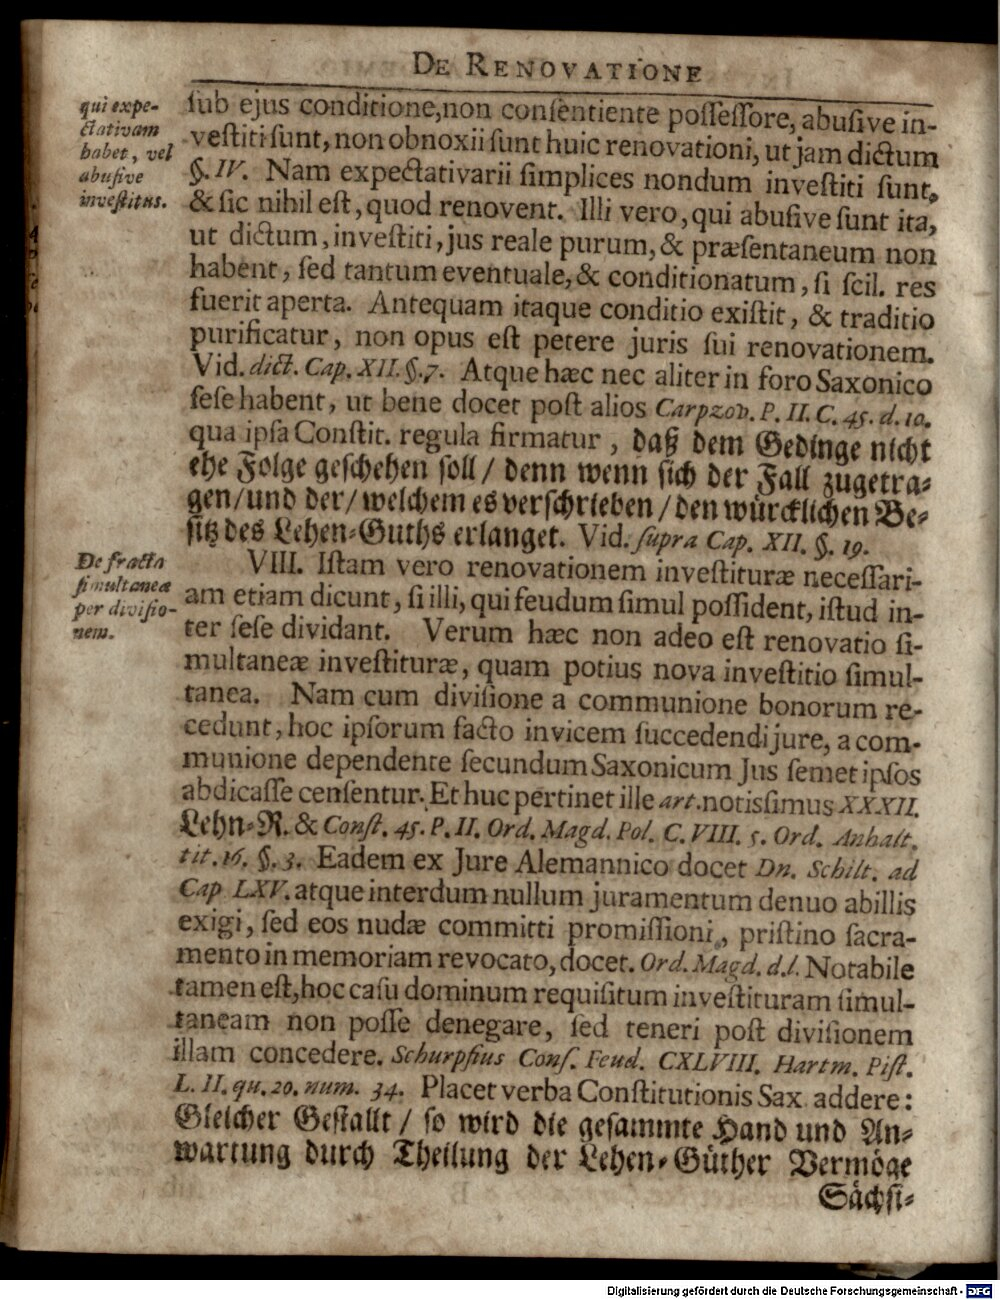 DE RENOVATIONE
qui expe-
ctativam
habet, vel
abusive
investitus.
sub ejus conditione, non consentiente possessore, abusive in-
vestiti sunt, non obnoxii sunt huic renovationi, ut jam dictum
§. IV. Nam expectativarii simplices nondum investiti sunt,
& sic nihil est, quod renovent. Illi vero, qui abusive sunt ita,
ut dictum, investiti, jus reale purum, & præsentaneum non
habent, sed tantum eventuale, & conditionatum, si scil. res
fuerit aperta. Antequam itaque conditio existit, & traditio
purificatur, non opus est petere juris sui renovationem.
Vid. dict. Cap. XII. §. 7. Atque hæc nec aliter in foro Saxonico
sese habent, ut bene docet post alios Carpzov. P. II. C. 45. d. 10.
qua ipsa Constit. regula firmatur, daß dem Gedinge nicht
ehe Folge geschehen soll / denn wenn sich der Fall zugetra-
gen/und der/welchem es verschrieben/den würcklichen Be-
sitz des Lehen-Guths erlanget. Vid. supra Cap. XII. §. 19.
De fracta
simultanea
per divisio-
nem.
VIII. Istam vero renovationem investituræ necessari-
am etiam dicunt, si illi, qui feudum simul possident, istud in-
ter sese dividant. Verum hæc non adeo est renovatio si-
multaneæ investituræ, quam potius nova investitio simul-
tanea. Nam cum divisione a communione bonorum re-
cedunt, hoc ipsorum facto invicem succedendi jure, a com-
munione dependente secundum Saxonicum Jus semet ipsos
abdicasse censentur. Et huc pertinet ille art. notissimus XXXII.
Lehn-R. & Const. 45. P. II. Ord. Magd. Pol. C. VIII. 5. Ord. Anhalt.
tit. 16. §. 3. Eadem ex Jure Alemannico docet Dn. Schilt. ad
Cap LXV. atque interdum nullum juramentum denuo ab illis
exigi, sed eos nudæ committi promissioni, pristino sacra-
mento in memoriam revocato, docet. Ord. Magd. d.l. Notabile
tamen est, hoc casu dominum requisitum investituram simul-
taneam non posse denegare, sed teneri post divisionem
illam concedere. Schurpfius Cons. Feud. CXLVIII. Hartm. Pist.
L. II. qu. 20. num. 34. Placet verba Constitutionis Sax addere:
Gleicher Gestallt / so wird die gesammte Hand und An-
wartung durch Theilung der Lehen-Güther Vermöge
Sächsi-
Digitalisierung gefördert durch die Deutsche Forschungsgemeinschaft - DFG